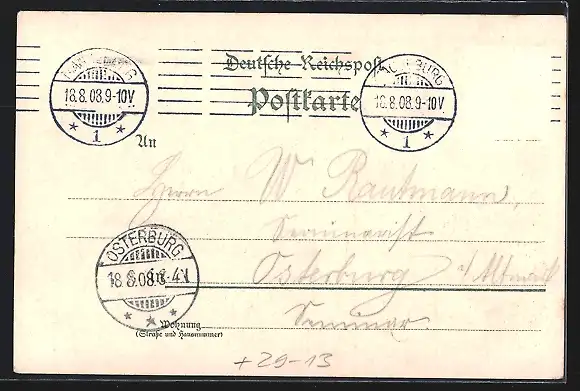 Deutsche Reichspost
Postkarte
18.8.08.9-10V
1
18.8.08.9-10V
1
An
Herrn W Rautmann,
Seminarist
OSTERBURG
18.8.08.3-4N
in Osterburg i/Altmark
Seminar
Wohnung
(Straße und Hausnummer)
+29-13